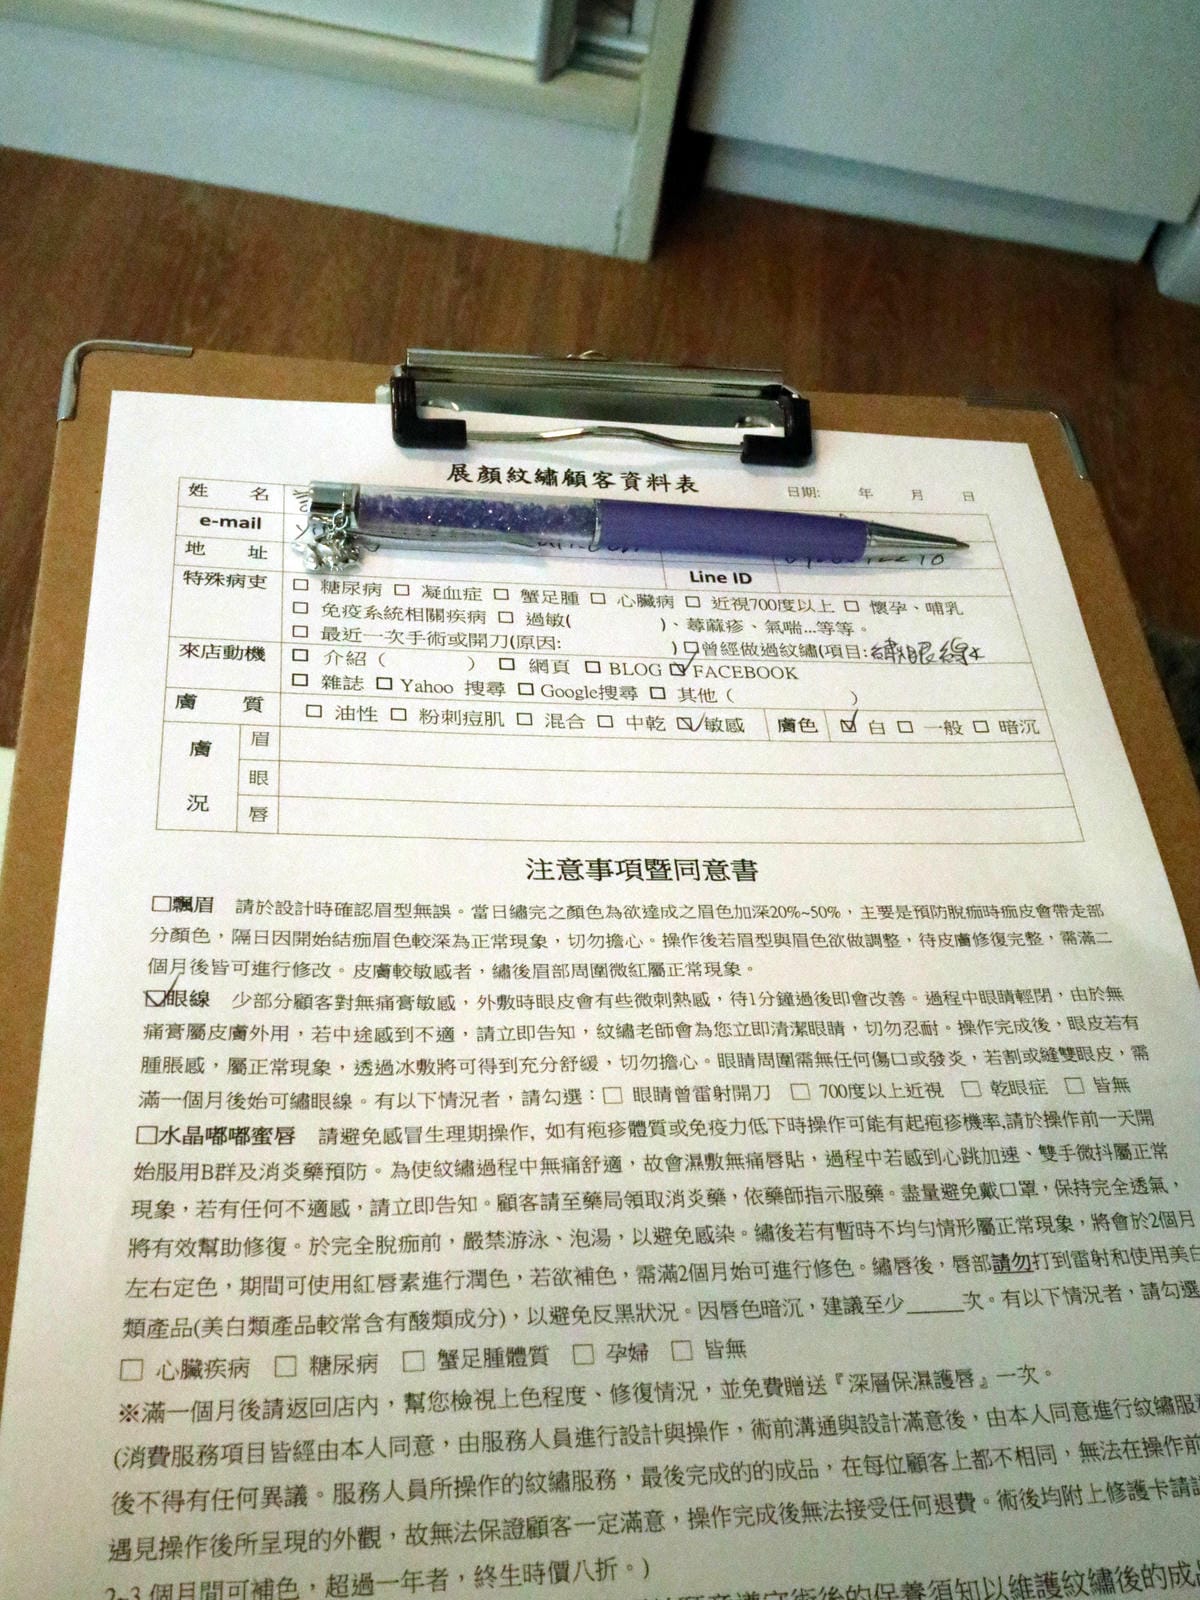 展顏紋繡顧客資料表
日期: 年 月 日
姓 名
e-mail
地 址
Line ID
特殊病吏 □ 糖尿病 □ 凝血症 □ 蟹足腫 □ 心臟病 □ 近視700度以上 □ 懷孕、哺乳
□ 免疫系統相關疾病 □ 過敏( )、蕁蔴疹、氣喘...等等。
□ 最近一次手術或開刀(原因: ) □曾經做過紋繡(項目:繡眼線
來店動機 □ 介紹（ ） □ 網頁 □ BLOG ☑ FACEBOOK
□ 雜誌 □ Yahoo 搜尋 □ Google搜尋 □ 其他（ ）
膚 質 □ 油性 □ 粉刺痘肌 □ 混合 □ 中乾 ☑ 敏感 膚色 ☑ 白 □ 一般 □ 暗沉
膚況 眉
眼
唇
注意事項暨同意書
□飄眉 請於設計時確認眉型無誤。當日繡完之顏色為欲達成之眉色加深20%~50%，主要是預防脫痂時痂皮會帶走部
分顏色，隔日因開始結痂眉色較深為正常現象，切勿擔心。操作後若眉型與眉色欲做調整，待皮膚修復完整，需滿二
個月後皆可進行修改。皮膚較敏感者，繡後眉部周圍微紅屬正常現象。
☑眼線 少部分顧客對無痛膏敏感，外敷時眼皮會有些微刺熱感，待1分鐘過後即會改善。過程中眼睛輕閉，由於無
痛膏屬皮膚外用，若中途感到不適，請立即告知，紋繡老師會為您立即清潔眼睛，切勿忍耐。操作完成後，眼皮若有
腫脹感，屬正常現象，透過冰敷將可得到充分舒緩，切勿擔心。眼睛周圍需無任何傷口或發炎，若割或縫雙眼皮，需
滿一個月後始可繡眼線。有以下情況者，請勾選：□ 眼睛曾雷射開刀 □ 700度以上近視 □ 乾眼症 □ 皆無
□水晶嘟嘟蜜唇 請避免感冒生理期操作, 如有疱疹體質或免疫力低下時操作可能有起疱疹機率,請於操作前一天開
始服用B群及消炎藥預防。為使紋繡過程中無痛舒適，故會濕敷無痛唇貼，過程中若感到心跳加速、雙手微抖屬正常
現象，若有任何不適感，請立即告知。顧客請至藥局領取消炎藥，依藥師指示服藥。盡量避免戴口罩，保持完全透氣，
將有效幫助修復。於完全脫痂前，嚴禁游泳、泡湯，以避免感染。繡後若有暫時不均勻情形屬正常現象，將會於2個月
左右定色，期間可使用紅唇素進行潤色，若欲補色，需滿2個月始可進行修色。繡唇後，唇部請勿打到雷射和使用美白
類產品(美白類產品較常含有酸類成分)，以避免反黑狀況。因唇色暗沉，建議至少_____次。有以下情況者，請勾選
□ 心臟疾病 □ 糖尿病 □ 蟹足腫體質 □ 孕婦 □ 皆無
※滿一個月後請返回店內，幫您檢視上色程度、修復情況，並免費贈送『深層保濕護唇』一次。
(消費服務項目皆經由本人同意，由服務人員進行設計與操作，術前溝通與設計滿意後，由本人同意進行紋繡服務
後不得有任何異議。服務人員所操作的紋繡服務，最後完成的的成品，在每位顧客上都不相同，無法在操作前
遇見操作後所呈現的外觀，故無法保證顧客一定滿意，操作完成後無法接受任何退費。術後均附上修護卡請詳
2-3 個月間可補色，超過一年者，終生時價八折。)
願意遵守術後的保養須知以維護紋繡後的成品